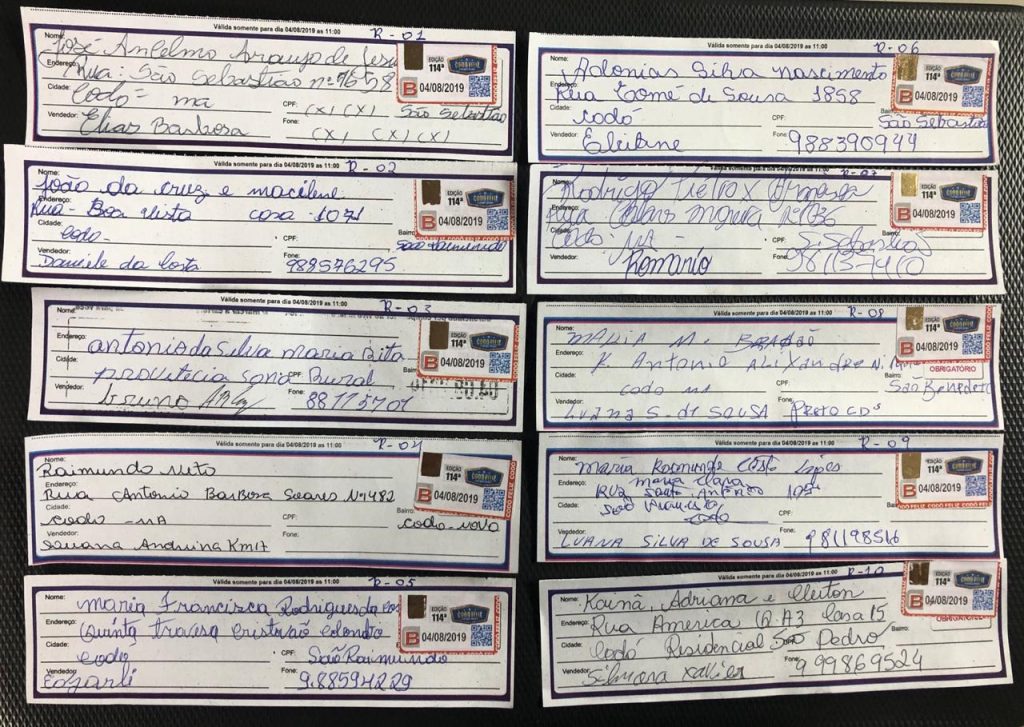 Válida somente para dia 04/08/2019 as 11:00 R-01
Nome: José Anselmo Araujo de
Endereço: Rua: São Sebastião nº
Cidade: Codó - ma CPF: (X) (X) São Sebastião
Vendedor: Elias Barbosa Fone: (X) (X) (X)
EDIÇÃO 114ª
B 04/08/2019
Válida somente para dia 04/08/2019 as 11:00 R-02
Nome: João da cruz e macilene
Endereço: Rua - Boa vista casa 1071
Cidade: Codo - CPF: Bairro: São Raimundo
Vendedor: Daniele da Costa 988576295
EDIÇÃO 114ª
B 04/08/2019
CODO FELIZ CODO
Válida somente para dia 04/08/2019 as 11:00 R-03
Nome:
Endereço: antonio da Silva Maria Rita
Cidade: Rural
Vendedor: bruno 88115701
EDIÇÃO 114ª
B 04/08/2019
Válida somente para dia 04/08/2019 as 11:00 R-04
Nome: Raimundo Neto
Endereço: Rua Antonio Barbosa Soares Nº 1482
Cidade: Codo - MA CPF: Bairro: Codo - novo
Vendedor: Andreina Km 17 Fone:
EDIÇÃO 114ª
B 04/08/2019
CODO FELIZ CODO
Válida somente para dia 04/08/2019 as 11:00 R-05
Nome: Maria Francisca Rodrigues da
Endereço: Quinta Travesa Cristovão Colombo
Cidade: Codó CPF: São Raimundo
Vendedor: Fone: 9.88594229
EDIÇÃO 114ª
B 04/08/2019
Válida somente para dia 04/08/2019 as 11:00 R-06
Nome: Adonias Silva nascimento
Endereço: Rua Tomé de Sousa 1858
Cidade: Codó CPF: São Sebastião
Vendedor: Eleitane Fone: 988390944
EDIÇÃO 114ª
B 04/08/2019
Válida somente para dia 04/08/2019 as 11:00
Rodrigo
Endereço:
Cidade: Codo CPF: Bairro: S. Sebastião
Vendedor: Romario Fone:
EDIÇÃO 114ª
B 04/08/2019
Válida somente para dia 04/08/2019 as 11:00 R-08
Nome: MARIA M. BRANDÃO
Endereço: R. Antonio Alixandre N.
Cidade: Codo MA Bairro: São Benedito
Vendedor: LUANA S. de SOUSA PRETO CDs
EDIÇÃO 114ª
B 04/08/2019
OBRIGATÓRIO
Válida somente para dia 04/08/2019 as 11:00 R-09
Nome: Maria Raimunda Costa Lopes
maria clara
Endereço: RUA Santo Antonio
Cidade: São Francisco
Codo CPF: Bairro:
Vendedor: LUANA SILVA DE SOUSA Fone: 981198516
EDIÇÃO 114ª
B 04/08/2019
CODO FELIZ CODO
Válida somente para dia 04/08/2019 as 11:00 R-10
Nome: Kainã, Adriana e Cleiton
Endereço: Rua America Q. A3 Casa 15
Cidade: Codó Residencial São Pedro Bairro:
Vendedor: Silmara Xavier 999869524
EDIÇÃO 114ª
B 04/08/2019
OBRIGATÓRIO